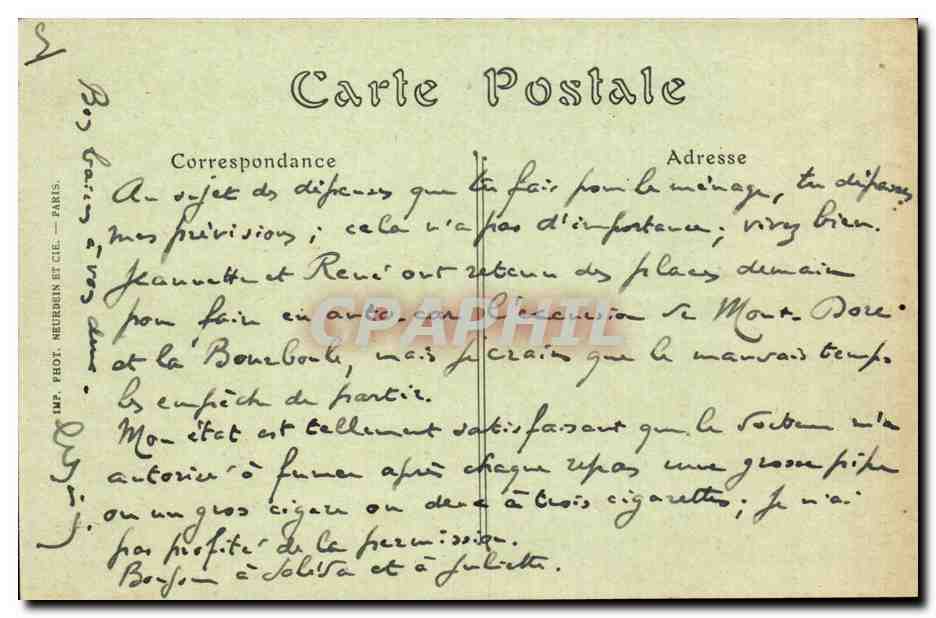 Carte Postale
Correspondance
Adresse
Au sujet des dépenses que tu fais pour le ménage, tu dépasses
mes prévisions ; cela n'a pas d'importance ; vivez bien.
Jeannette et René ont retenu des places demain
pour faire en auto-car l'excursion de Mont-Dore
et la Bourboule, mais je crains que le mauvais temps
les empêche de partir.
Mon état est tellement satisfaisant que le docteur m'a
autorisé à fumer après chaque repas une grosse pipe
ou un gros cigare ou deux à trois cigarettes ; je n'ai
pas profité de la permission.
Bonjour à et à Juliette.
Bons baisers à vous deux.
IMP. PHOT. NEURDEIN ET CIE. — PARIS.
CPAPHIL